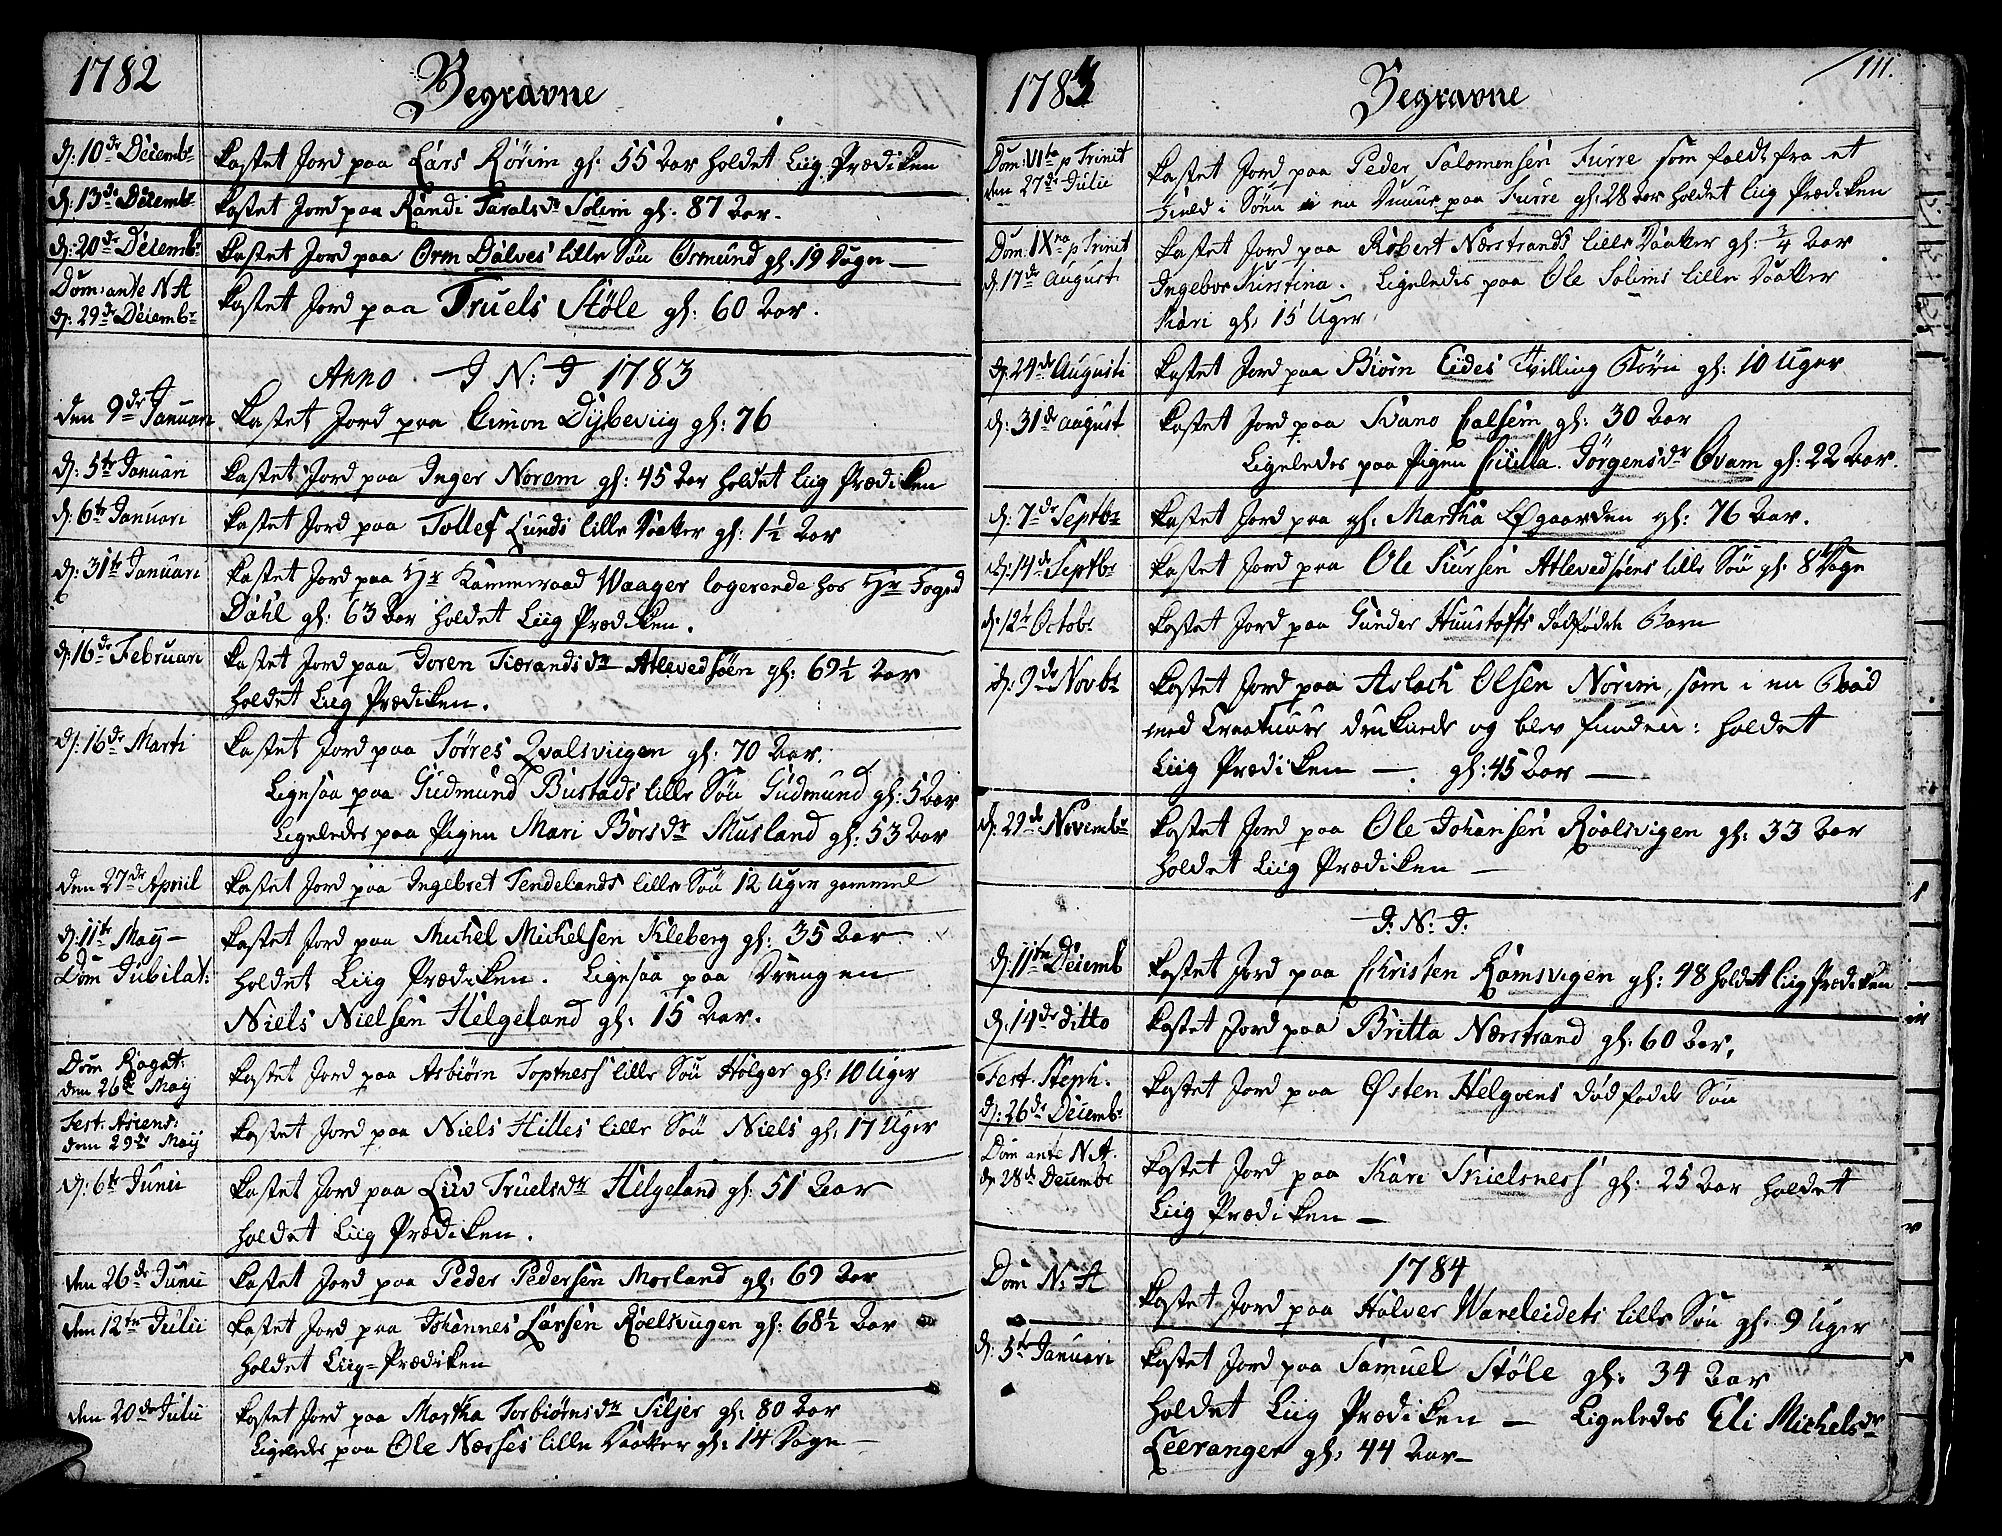 1782
Begravne
d: 10de Decembr
Kastet Jord paa Lars Rørim gl: 55 Aar holdet Liig Prædiken
d: 13de Decembr
Kastet Jord paa Randi Taralsdr Solem gl: 87 Aar.
d: 20de Decembr
Kastet Jord paa Orm Dalves lille Søn Osmund gl. 19 Dage —
Dom: ante N A
d: 29de Decembr
Kastet Jord paa Truels Støle gl: 60 Aar.
Anno J N: J 1783
den 9de Januari
Kastet Jord paa Simon Dybeviig gl: 76
d: 5te Januari
Kastet Jord paa Inger Norem gl: 45 Aar holdet Liig Prædiken
d: 6te Januari
Kastet Jord paa Tollef Lunds lille Daatter gl: 1½ Aar
d: 31te Januari
Kastet Jord paa Hr Kammerraad Waager logerende hos Hr Foged
Dahl gl: 63 Aar holdet Liig Prædiken.
d: 16de Februari
Kastet Jord paa Doren Tiærandsdr Atlevedsøen gl: 69½ Aar
holdet Liig Prædiken.
d: 16de Marti
Kastet Jord paa Torres Qvalsviigen gl: 70 Aar.
Ligesaa paa Gudmund Bustads lille Søn Gudmund gl: 5 Aar
Ligeledes paa Pigen Mari Borsdr Musland gl: 53 Aar
den 27de April
Kastet Jord paa Ingebret Tendelands lille Søn 12 Uger gammel
d: 11te May —
Dom Jubilat:
Kastet Jord paa Michel Michelsen Kleberg gl: 35 Aar
holdet Liig Prædiken. Ligesaa paa Drengen
Niels Nielsen Helgeland gl: 15 Aar.
Dom Rogat:
den 26de May
Kastet Jord paa Asbiørn Toptness lille Søn Holger gl: 10 Uger
Fest. Asiens:
den 29de May
Kastet Jord paa Niels Hilles lille Søn Niels gl: 17 Uger
d: 6te Junii
Kastet Jord paa Liv Truelsdr Helgeland gl: 51 Aar
holdet Liig Prædiken.
den 26de Junii
Kastet Jord paa Peder Pedersen Morland gl: 69 Aar
den 12te Julii
Kastet Jord paa Johannes Larsen Roelsviigen gl: 68½ Aar
holdet Liig-Prædiken
den 20de Julii
Kastet Jord paa Martha Torbiørnsdr Siljer gl: 80 Aar
Ligeledes paa Ole Næses lille Daatter gl: 14 Dage —
111.
1783
Begravne
Dom: VIta p Trinit
den 27de Julii
Kastet Jord paa Peder Salomonsen Furre som faldt fra et
Field i Søen i en Snuur paa Furre gl: 28 Aar holdet Liig Prædiken
Dom. IXna p Trinit
d. 17de August
Kastet Jord paa Robert Nærstrands lille Daatter gl: ¾ Aar
Ingebor Kirstina. Ligeledes paa Ole Solems lille Daatter
Kari gl: 15 Uger
d: 24de Augusti
Kastet Jord paa Biørn Eides Tvilling Børn gl: 10 Uger
d: 31de August
Kastet Jord paa Svano Falsem gl: 30 Aar
Ligeledes paa Pigen Gulla Jørgensdr Qvam gl: 22 Aar.
d: 7de Septbr
Kastet Jord paa gl: Martha Løgaarden gl: 76 Aar.
d: 14de Septbr
Kastet Jord paa Ole Siursen Atlevedsøens lille Søn gl: 8 Dage
d: 12te Octobr
Kastet Jord paa Gunder Huustofts dødfødde Barn
d: 9de Novbr
Kastet Jord paa Aslach Olsen Norim, som i en Baad
med Creatuure druknede og blev funden: holdet
Liig Prædiken —. gl: 45 Aar —
d: 29de Novembr
Kastet Jord paa Ole Johansen Roalsvigen gl: 33 Aar
holdet Liig Prædiken —
J. N. J.
d: 11te Decemb
Kastet Jord paa Christen Ramsvigen gl: 48 holdet Liig Prædiken
d: 14de ditto
Kastet Jord paa Britta Nærstrand gl: 60 Aar,
Fest. Steph.
d: 26de Decembr
Kastet Jord paa Østen Helgøens dødfødde Søn
Dom ante N.A.
d: 28de Decembr
Kastet Jord paa Kari Skielsness gl: 25 Aar holdet
Liig Prædiken —
1784
Dom N. A
Kastet Jord paa Halver Wareleidets lille Søn gl: 9 Uger
d: 5te Januari
Kastet Jord paa Samuel Støle gl: 34 Aar
holdet Liig Prædiken — Ligeledes Eli Michelsdr
Leeranger gl: 44 Aar —